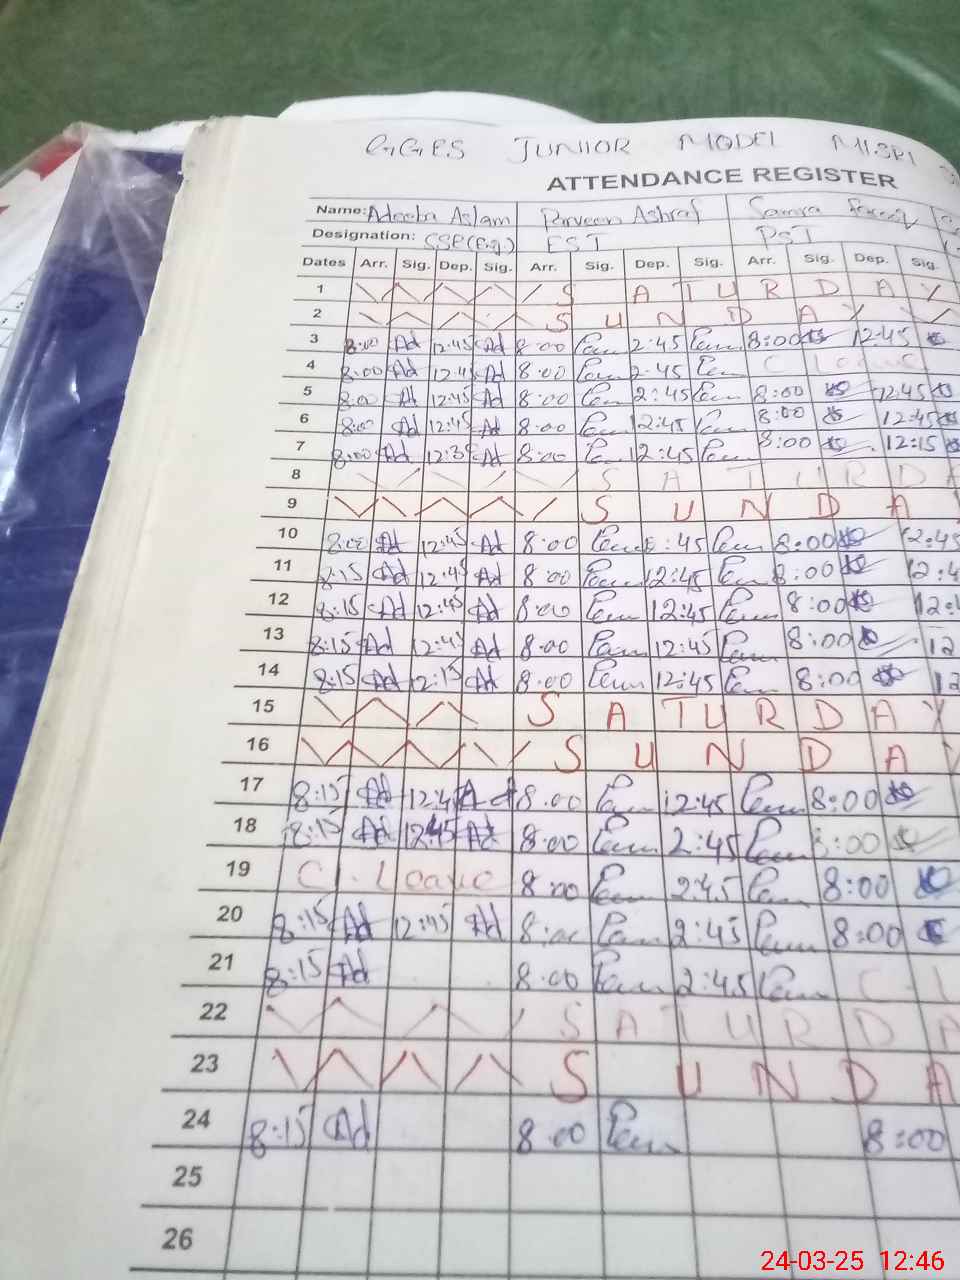 GGES JUNIOR MODEL
ATTENDANCE REGISTER
Name: Adeeba Aslam Parveen Ashraf Samra
Designation: EST PST
Dates Arr. Sig. Dep. Sig. Arr. Sig. Dep. Sig. Arr. Sig. Dep. Sig.
1 S A T U R D A Y
2 S U N D A Y
3 8:00 Ad 12:45 Ad 8:00 2:45 8:00 12:45
4 8:00 Ad 12:4 Ad 8:00 2:45 C Leave
5 8:00 Ad 12:45 Ad 8:00 2:45 8:00 12:45
6 8:00 Ad 12:45 Ad 8:00 12:45 8:00 12:45
7 8:00 Ad 12:3 Ad 8:00 12:45 8:00 12:15
8 S A T U R D A
9 S U N D A
10 8:00 Ad 12:45 Ad 8:00 :45 8:00 12:45
11 8:15 Ad 12:45 Ad 8:00 12:45 8:00 12:4
12 8:15 Ad 12:45 Ad 8:00 12:45 8:00 12:4
13 8:15 Ad 12:45 Ad 8:00 12:45 8:00 12
14 8:15 Ad 12:15 Ad 8:00 12:45 8:00 12
15 S A T U R D A Y
16 S U N D A Y
17 8:15 Ad 12:4 Ad 8:00 12:45 8:00
18 8:15 Ad 12:45 Ad 8:00 2:45 8:00
19 C. Leave 8:00 2:45 8:00
20 8:15 Ad 12:45 Ad 8:00 2:45 8:00
21 8:15 Ad 8:00 2:45 C L
22 S A T U R D A
23 S U N D A
24 8:15 Ad 8:00 8:00
25
26
24-03-25 12:46